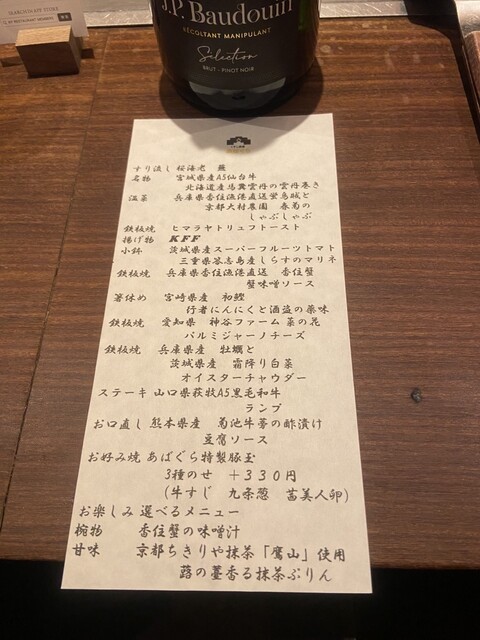 J.P. Baudouin
RÉCOLTANT MANIPULANT
Sélection
BRUT - PINOT NOIR
すり流し 桜海老 蕪
名物 宮城県産A5仙台牛
北海道産馬糞雲丹の雲丹巻き
温菜 兵庫県香住漁港直送蛍烏賊と
京都大村農園 春菊の
しゃぶしゃぶ
鉄板焼 ヒマラヤトリュフトースト
揚げ物 KFF
小鉢 茨城県産スーパーフルーツトマト
三重県答志島産しらすのマリネ
鉄板焼 兵庫県香住漁港直送 香住蟹
蟹味噌ソース
箸休め 宮崎県産 初鰹
行者にんにくと酒盗の薬味
鉄板焼 愛知県 神谷ファーム 菜の花
パルミジャーノチーズ
鉄板焼 兵庫県産 牡蠣と
茨城県産 霜降り白菜
オイスターチャウダー
ステーキ 山口県萩牧A5黒毛和牛
ランプ
お口直し 熊本県産 菊池牛蒡の酢漬け
豆腐ソース
お好み焼 あばぐら特製豚玉
3種のせ +330円
(牛すじ 九条葱 茜美人卵)
お楽しみ 選べるメニュー
椀物 香住蟹の味噌汁
甘味 京都ちきりや抹茶「鷹山」使用
蕗の薹香る抹茶ぷりん